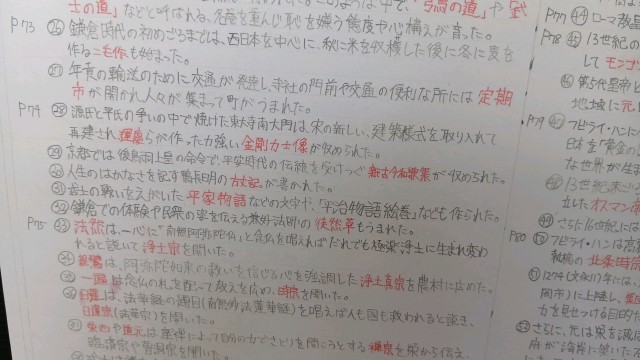 士の道」などと呼ばれる、名誉を重んじ恥を嫌う態度や心構えが育った。
P73 ㉖ 鎌倉時代の初めごろまでは、西日本を中心に、秋に米を収穫した後に冬に麦を
作る二毛作も始まった。
㉗ 年貢の輸送のために交通が発達し、寺社の門前や交通の便利な所には定期
市が開かれ人々が集まって町がうまれた。
P74 ㉘ 源氏と平氏の争いの中で焼けた東大寺南大門は、宋の新しい、建築様式を取り入れて
再建され運慶らが作った力強い金剛力士像が収められた。
㉙ 京都では後鳥羽上皇の命令で、平安時代の伝統を受けつぐ新古今和歌集が収められた。
㉚ 人生のはかなさを記す鴨長明の方丈記が書かれた。
㉛ 武士の戦いをえがいた平家物語などの文学や、「平治物語絵巻」なども作られた。
㉜ 鎌倉での体験や民衆の姿を伝える兼好法師の徒然草もうまれた。
P75 ㉝ 法然は一心に「南無阿弥陀仏」と念仏を唱えればだれでも極楽浄土に生まれ変わ
れると説いて浄土宗を開いた。
㉞ 親鸞は、阿弥陀如来の救いを信じる心を強調した浄土真宗を農村に広めた。
㉟ 一遍は念仏の札を配って教えを広め、時宗を開いた。
㊱ 日蓮は、法華経の題目(南無妙法蓮華経)を唱えば人も国も救われると説き、
日蓮宗(法華宗)を開いた。
㊲ 栄西や道元は座禅によって自分の力でさとりを開こうとする禅宗を宋から伝え、
臨済宗や曹洞宗を開いた。
P77 ㊹ ローマ教皇
P78 ㊺ 13世紀の
してモンゴ
㊻ 第5代皇帝
地域に元
P79 ㊼ フビライ・ハンに
日本を「黄金の
な世界が生
㊽ 13世紀末
立したオスマン
㊾ さらに16世紀には
P80 ㊿ フビライ・ハンは高
執権の北条時宗
1274(文永11)年には、
岡市)に上陸し、集
力を見せつける目的
さらに、元は宋を滅ぼ
府が海岸に築いた